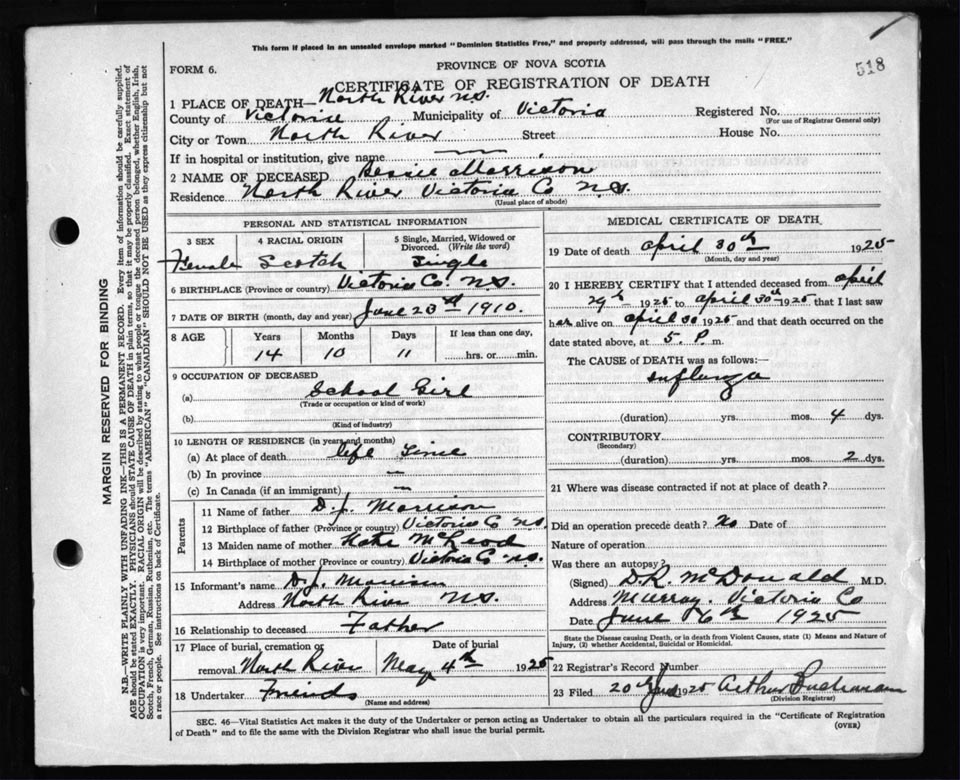 This form if placed in an unsealed envelope marked "Dominion Statistics Free," and properly addressed, will pass through the mails "FREE."
518
FORM 6.
PROVINCE OF NOVA SCOTIA
CERTIFICATE OF REGISTRATION OF DEATH
1 PLACE OF DEATH— North River N.S.
County of Victoria Municipality of Victoria Registered No.
(For use of Registrar General only)
City or Town North River Street House No.
If in hospital or institution, give name —
2 NAME OF DECEASED Bessie Morrison
Residence North River Victoria Co N.S.
(Usual place of abode)
PERSONAL AND STATISTICAL INFORMATION
3 SEX 4 RACIAL ORIGIN 5 Single, Married, Widowed or Divorced. (Write the word)
Female Scotch Single
6 BIRTHPLACE (Province or country) Victoria Co. N.S.
7 DATE OF BIRTH (month, day and year) June 23rd 1910.
8 AGE Years Months Days If less than one day,
14 10 11 hrs. or min.
9 OCCUPATION OF DECEASED
(a) School Girl
(Trade or occupation or kind of work)
(b)
(Kind of industry)
10 LENGTH OF RESIDENCE (in years and months)
(a) At place of death life time
(b) In province —
(c) In Canada (if an immigrant) —
Parents
11 Name of father D.J. Morrison
12 Birthplace of father (Province or country) Victoria Co N.S.
13 Maiden name of mother Kate McLeod
14 Birthplace of mother (Province or country) Victoria Co N.S.
15 Informant's name D.J. Morrison
Address North River N.S.
16 Relationship to deceased Father
17 Place of burial, cremation or removal Date of burial
North River May 4th 1925
18 Undertaker Friends
(Name and address)
MEDICAL CERTIFICATE OF DEATH
19 Date of death April 30th 1925
(Month, day and year)
20 I HEREBY CERTIFY that I attended deceased from April
29th 1925 to April 30th 1925 that I last saw
her alive on April 30 1925 and that death occurred on the
date stated above, at 5. P. m.
The CAUSE of DEATH was as follows:—
Influenza
(duration) yrs. mos. 4 dys.
CONTRIBUTORY
(Secondary)
(duration) yrs. mos. 2 dys.
21 Where was disease contracted if not at place of death?
Did an operation precede death? No Date of
Nature of operation
Was there an autopsy?
(Signed) D.R. McDonald M.D.
Address Murray. Victoria Co
Date June 6th 1925
State the Disease causing Death, or in death from Violent Causes, state (1) Means and Nature of
Injury, (2) whether Accidental, Suicidal or Homicidal.
22 Registrar's Record Number
23 Filed 20th June 1925 Arthur Buchanan
(Division Registrar)
SEC. 46—Vital Statistics Act makes it the duty of the Undertaker or person acting as Undertaker to obtain all the particulars required in the "Certificate of Registration
of Death" and to file the same with the Division Registrar who shall issue the burial permit.
(OVER)
MARGIN RESERVED FOR BINDING
N.B.—WRITE PLAINLY WITH UNFADING INK—THIS IS A PERMANENT RECORD. Every item of information should be carefully supplied.
AGE should be stated EXACTLY. PHYSICIANS should STATE CAUSE OF DEATH in plain terms, so that it may be properly classified. Exact statement of
OCCUPATION is very important. RACIAL ORIGIN will be described by stating to what people or tongue the deceased person belonged, whether English, Irish,
Scotch, French, German, Russian, Ruthenian, etc. The terms "AMERICAN" or "CANADIAN" SHOULD NOT BE USED as they express citizenship but not
a race or people. See instructions on back of Certificate.